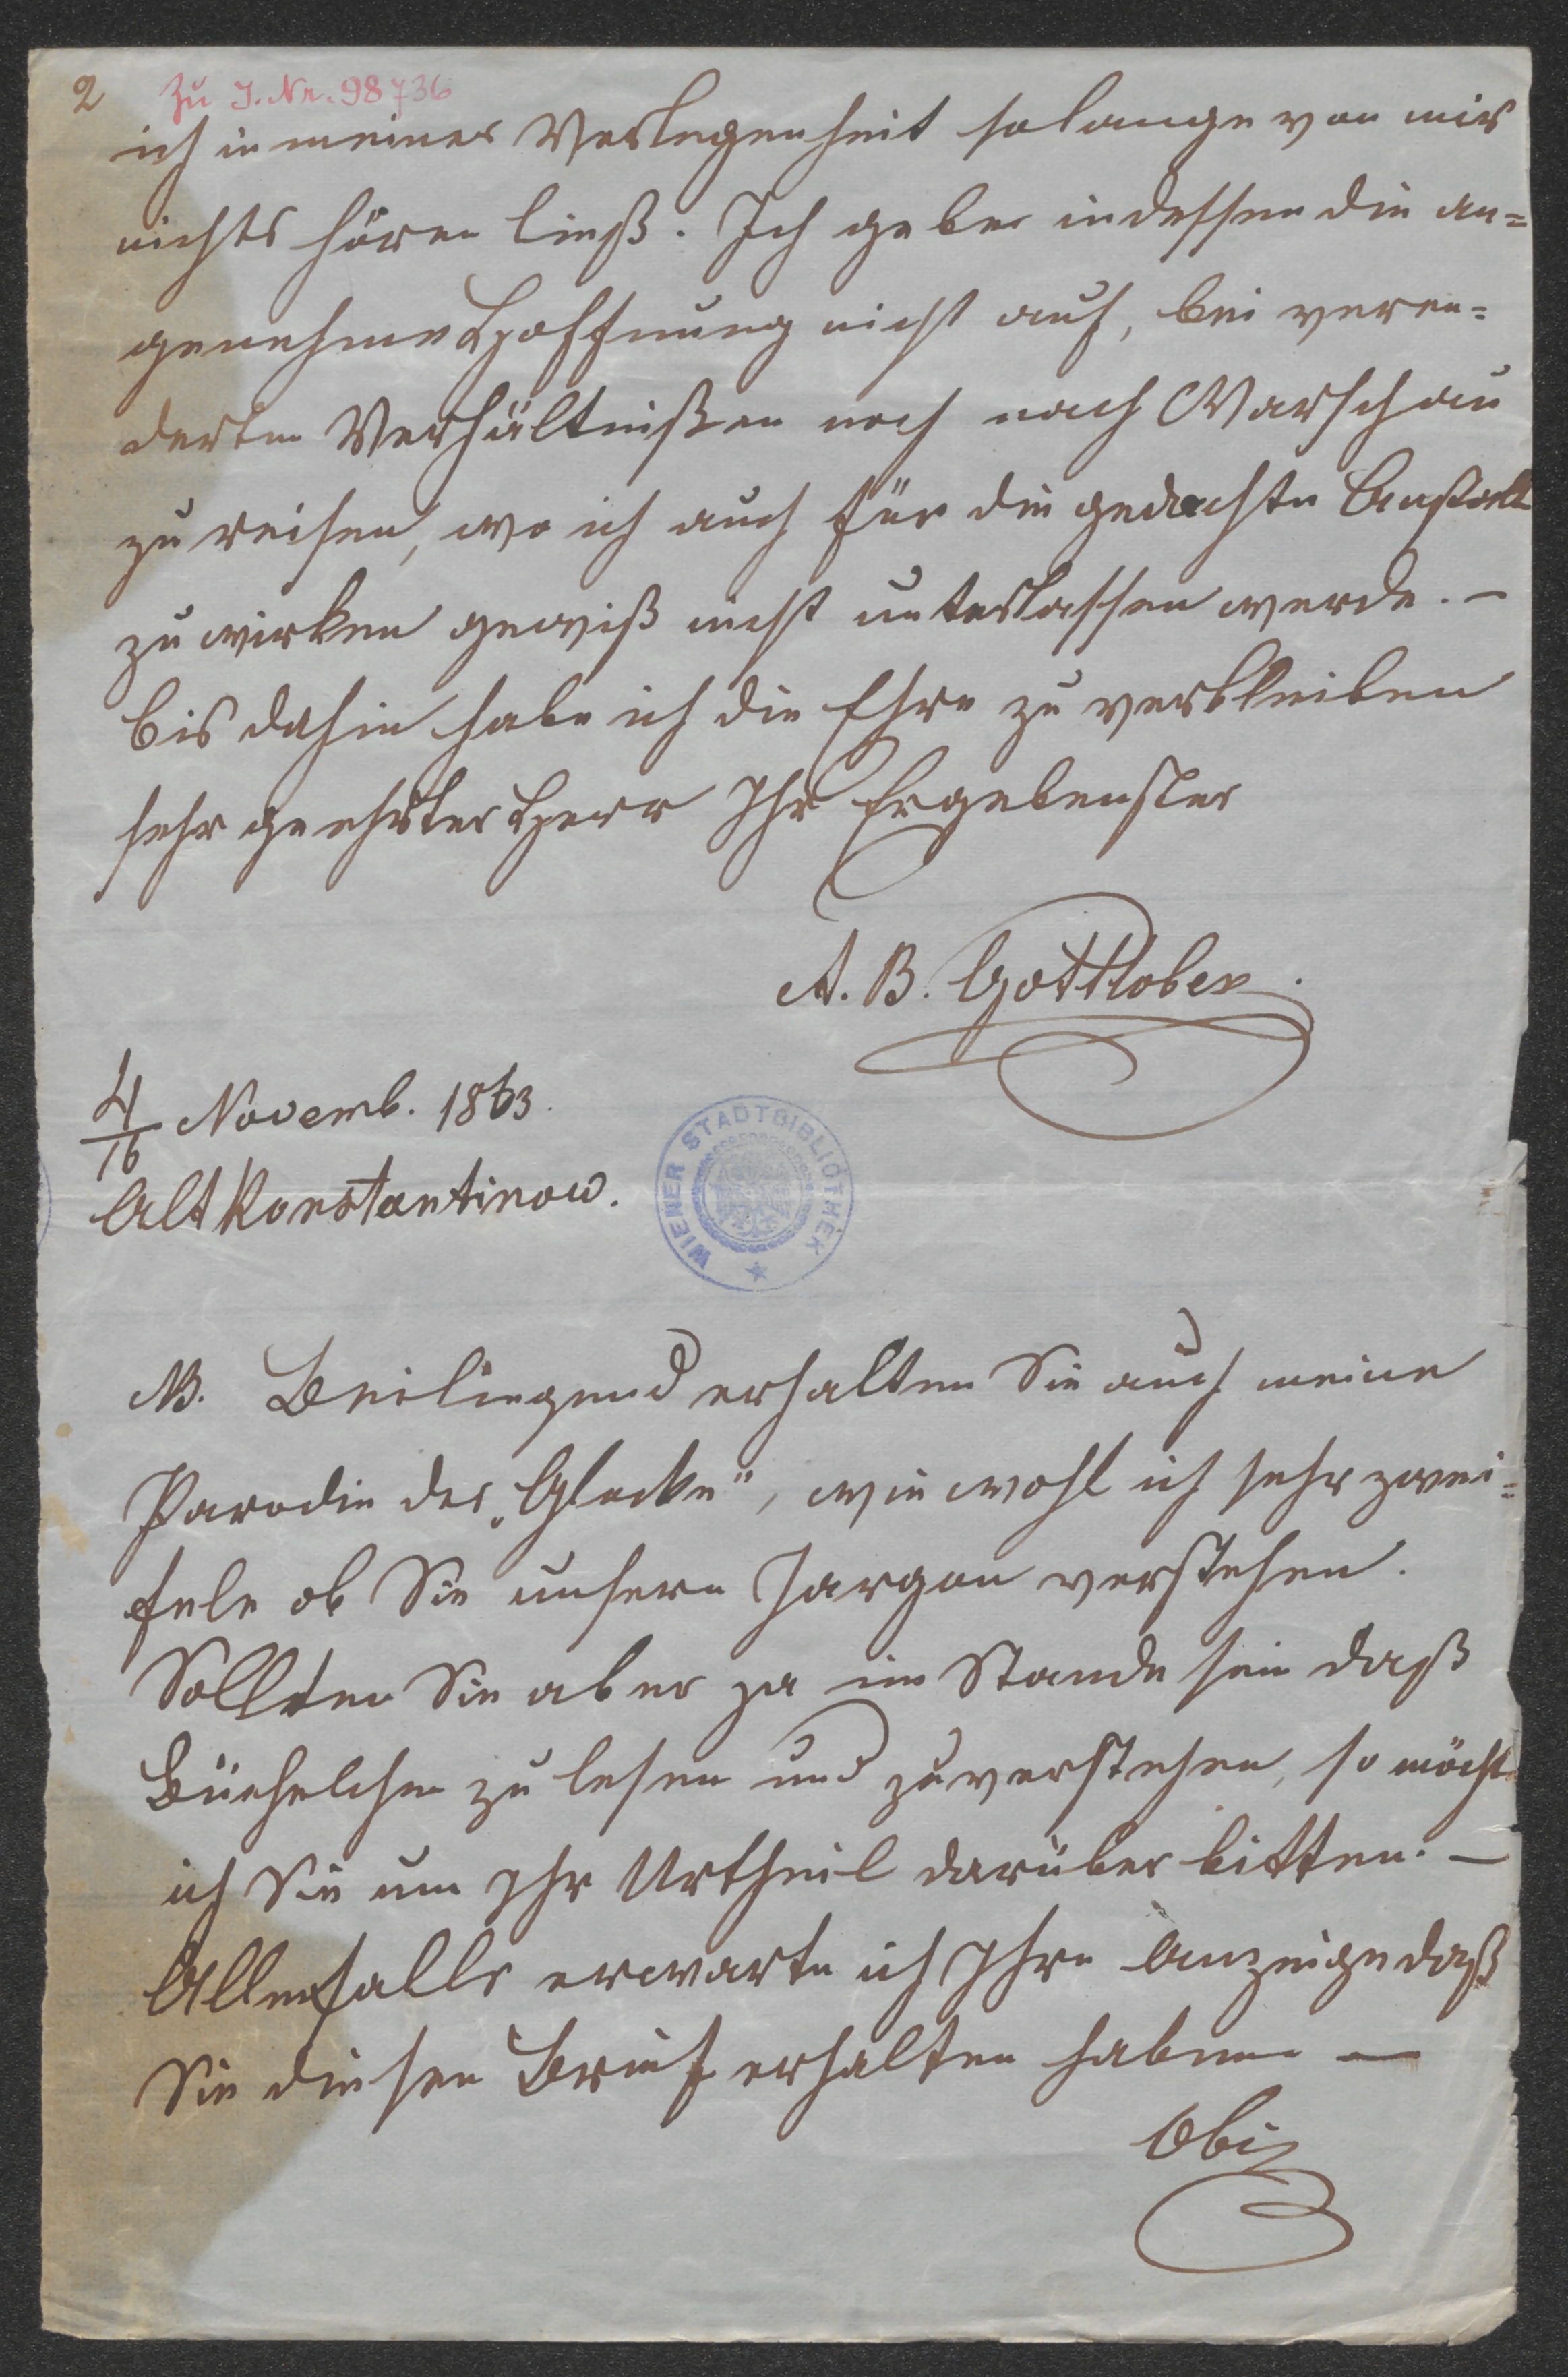 2 Zu J. Nr. 98736
ich in meiner Verlegenheit solange von mir
nichts hören ließ. Ich gebe indessen die an=
genehme Hoffnung nicht auf, bei veren=
derten Verhältnißen noch nach Warschau
zu reisen, wo ich auch für die gedachte Anstalt
zu wirken gewiß nicht unterlassen werde. –
Bis dahin habe ich die Ehre zu verbleiben
sehr geehrter Herr Ihr Ergebenster
A. B. Gottlober.
4/16 Novemb. 1863.
Alt Konstantinow.
WIENER STADTBIBLIOTHEK
NB. Beiliegend erhalten Sie auch meine
Parodie der „Glocke", wiewohl ich sehr zwei=
fele ob Sie unsern Jargon verstehen.
Sollten Sie aber ja im Stande sein daß
Büchelchen zu lesen und zu verstehen, so möchte
ich Sie um Ihr Urtheil darüber bitten. –
Allenfalls erwarte ich Ihre Anzeige daß
Sie diesen Brief erhalten haben –
Obig